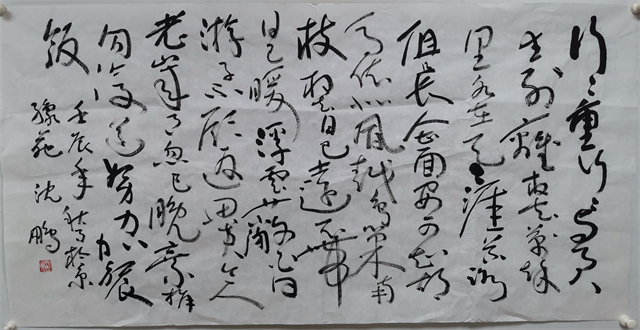 行〻重行〻与君
生別離相去萬餘
里各在天一涯道路
阻且長會面安可知胡
馬依北風越鳥巢南
枝相去日已遠衣帶
日已緩浮雲蔽白日
游子不顧返思君令人
老歲月忽已晚棄捐
勿復道努力加餐
飯
壬辰年秋写於京
沈鵬